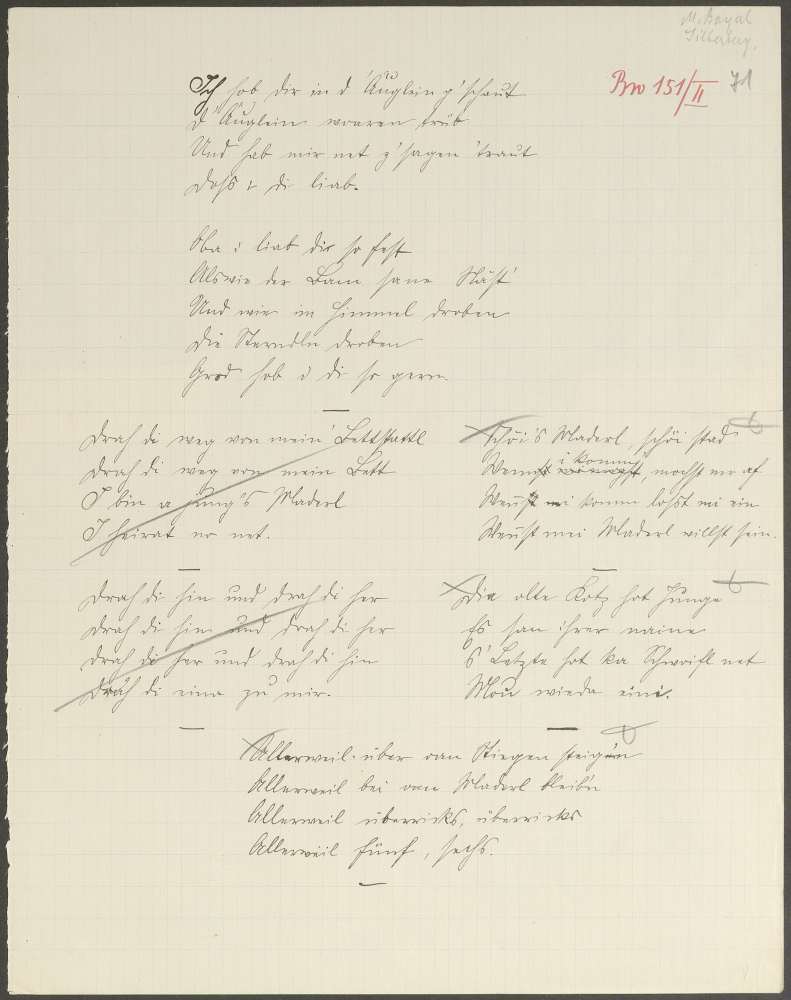 Bw 151/II 71
Ich hob dir in d' Äuglein g'schaut
D' Äuglein woaren trüb
Und hab mir net z' sagen 'traut
Dass i di liab.
Oba i liab dir so fest
Als wie der Bam sane Näst'
Und wie im Himmel droben
Die Sterndln droben
Grod hob i di so gern
Drah di weg von mein' Bettstattl
Drah di weg von mein Bett
I bin a jung's Maderl
I heirat no net.
Schöi's Maderl, schöi stad
Wennst i komm, mochst mr af
Wennst i komm losst mi ein
Wennst mei Maderl willst sein.
Drah di hin und drah di her
Drah di hin und drah di her
Drah di her und drah di hin
Drah di eina zu mir.
Die olte Kotz hot Junge
Es san ihrer naine
S' Letzte hot ka Schwoifl net
Mou wieda eini.
Allerweil über oan Stiegen steig'n
Allerweil bei oan Maderl bleib'n
Allerweil überricks, überricks
Allerweil fünf, sechs.